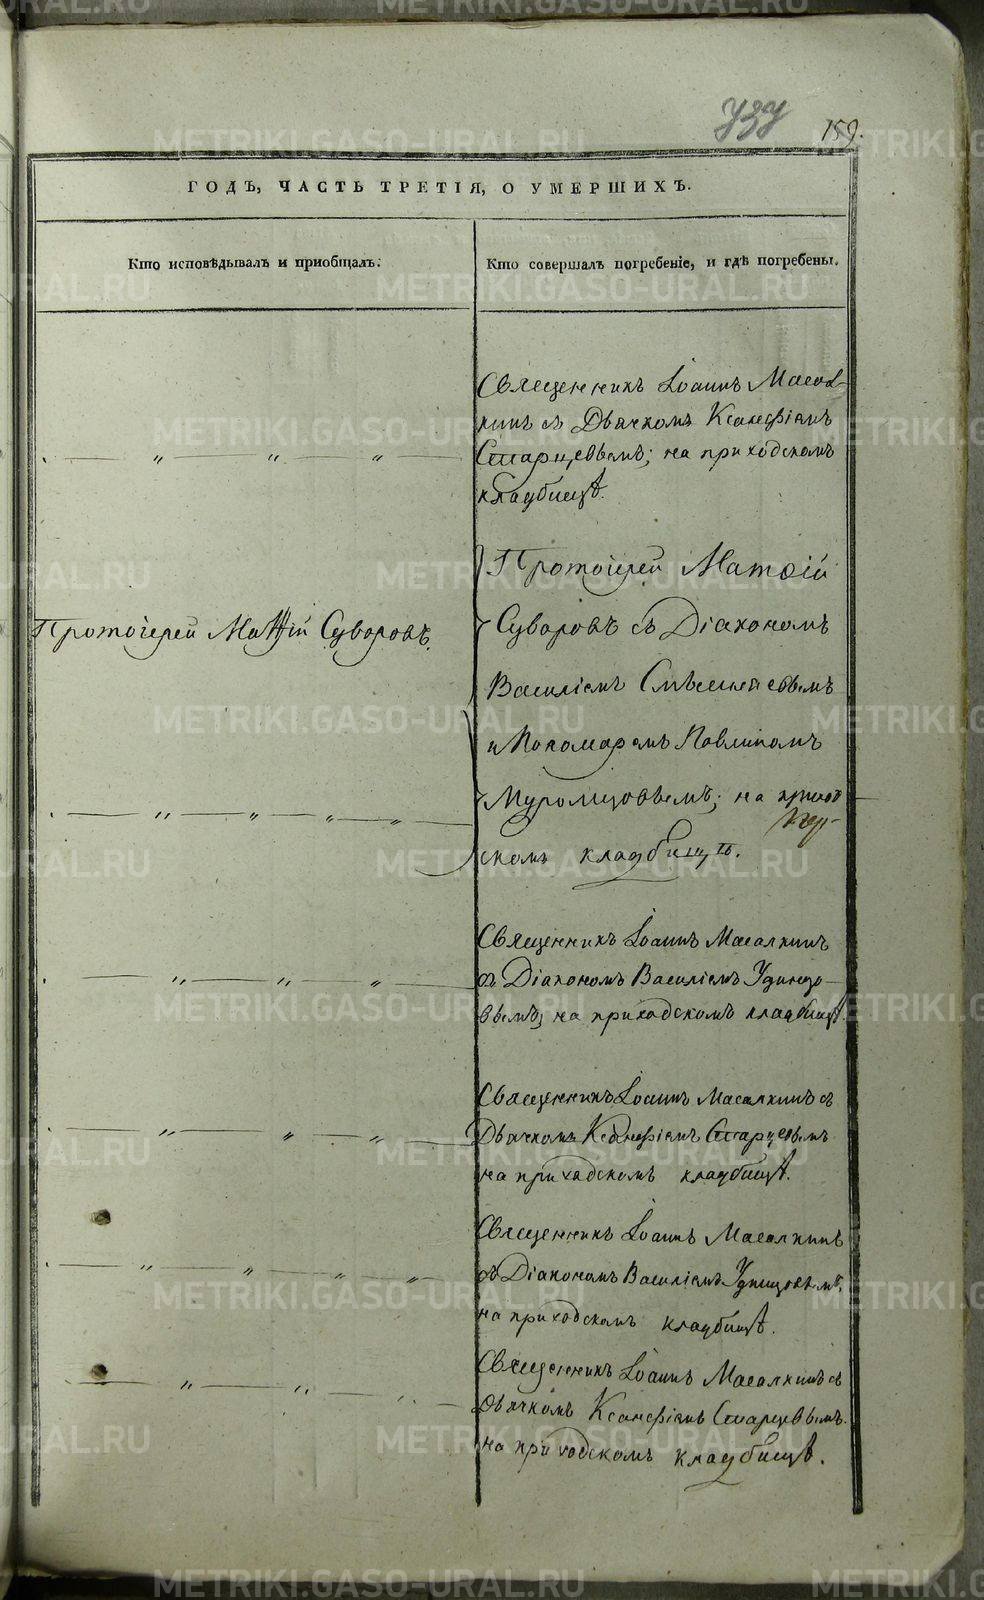 159.
ГОДЪ, ЧАСТЬ ТРЕТІЯ, О УМЕРШИХЪ.
Кто исповѣдывалъ и приобщалъ.
Кто совершалъ погребеніе, и гдѣ погребены.
Священникъ Іоаннъ Масал-
кинъ съ Дьячкомъ Ксенофіемъ
Старцевымъ; на приходскомъ
кладбищѣ.
Протоіерей Матѳій
Протоіерей Матѳій Суворовъ.
Суворовъ съ Діакономъ
Василіемъ
и Пономаремъ Павлиномъ
Муромцовымъ; на приход
скомъ кладбищѣ.
Священникъ Іоаннъ Масалкинъ
съ Діакономъ Василіемъ Удинцо-
вымъ; на приходскомъ кладбищѣ.
Священникъ Іоаннъ Масалкинъ съ
Дьячкомъ Ксенофіемъ Старцевымъ
на приходскомъ кладбищѣ.
Священникъ Іоаннъ Масалкинъ
съ Діакономъ Василіемъ Удинцовымъ,
на приходскомъ кладбищѣ.
Священникъ Іоаннъ Масалкинъ съ
Дьячкомъ Ксенофіемъ Старцевымъ.
на приходскомъ кладбищѣ.
METRIKI.GASO-URAL.RU